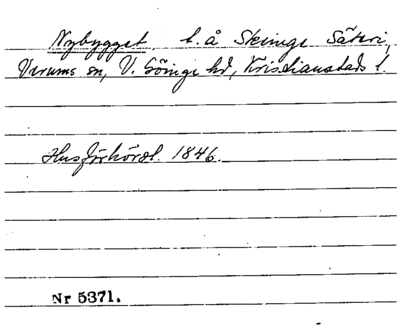 Nybygget, t. å Skeinge Säteri,
Verums sn, V. Göinge hd, Kristianstads l.
Husförhörsl. 1846.
Nr 5371.